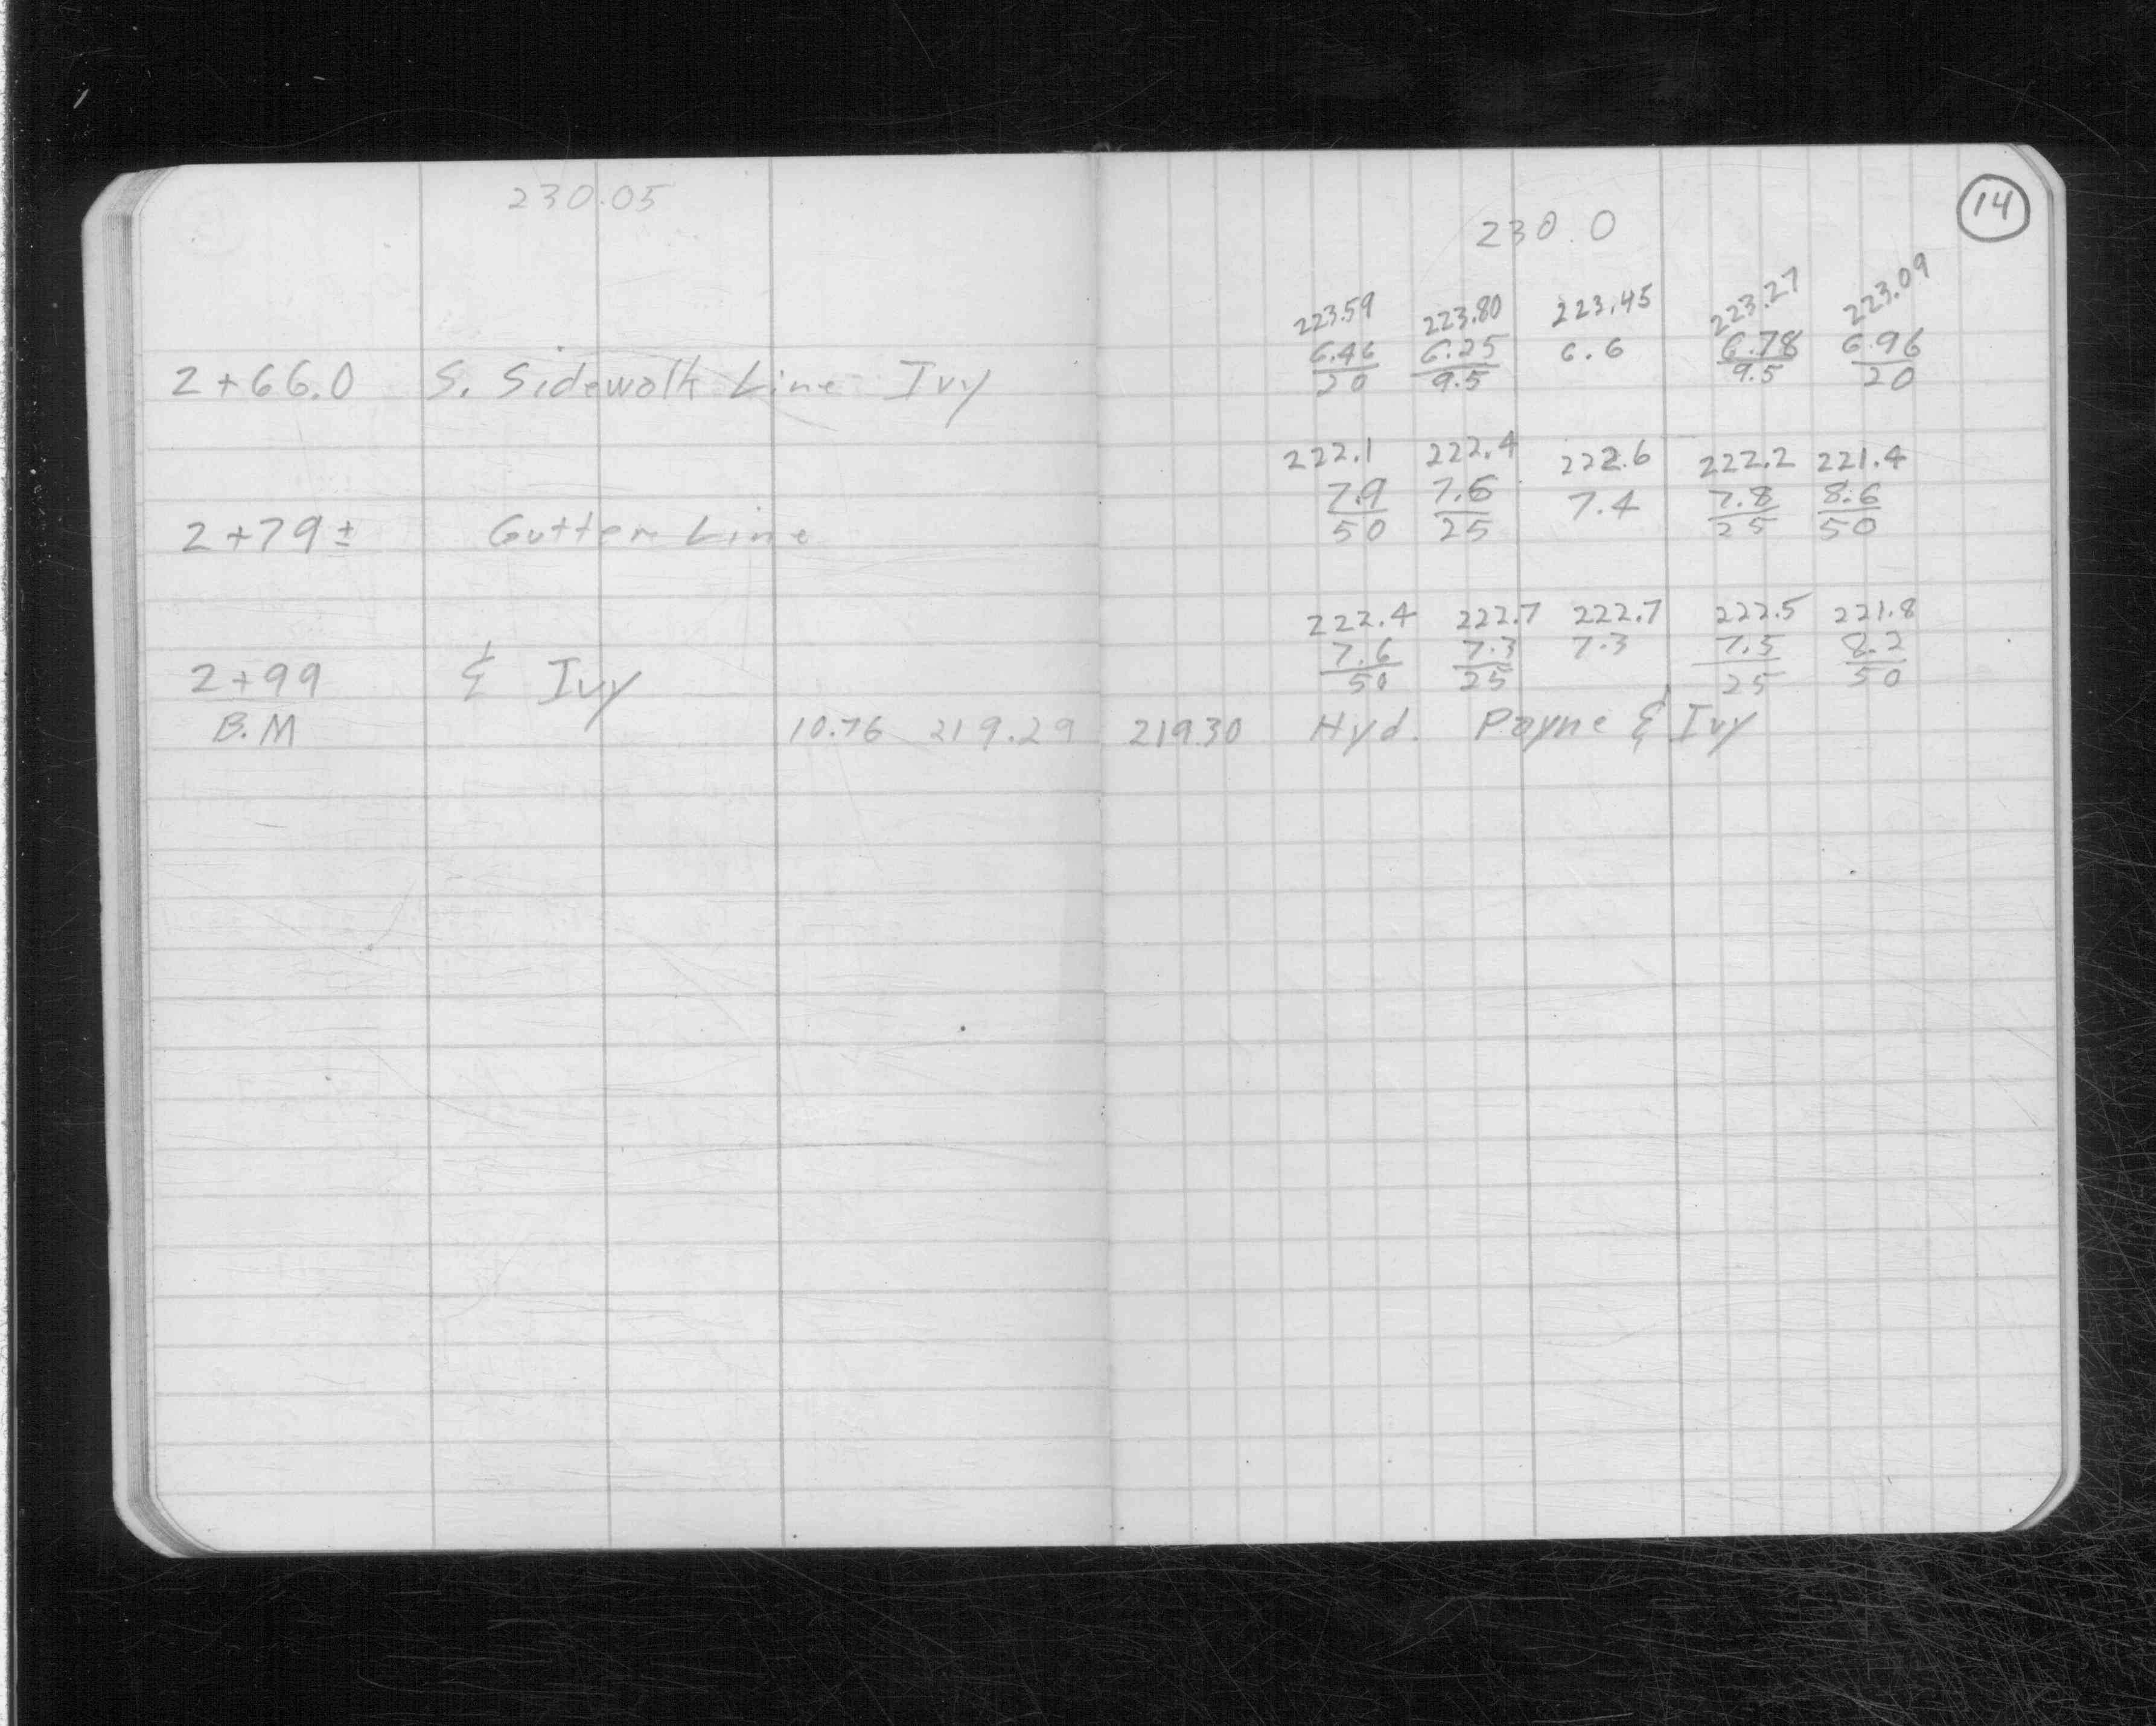 230.05
230.0
14
223.59 223.80 223.45 223.27 223.09
6.46 6.25 6.6 6.78 6.96
2+66.0 S. Sidewalk Line Ivy 20 9.5 9.5 20
222.1 222.4 222.6 222.2 221.4
7.9 7.6 7.4 7.8 8.6
2+79± Gutter Line 50 25 25 50
222.4 222.7 222.7 222.5 221.8
7.6 7.3 7.3 7.5 8.2
2+99 ⅊ Ivy 50 25 25 50
B.M 10.76 219.29 219.30 Hyd. Payne & Ivy